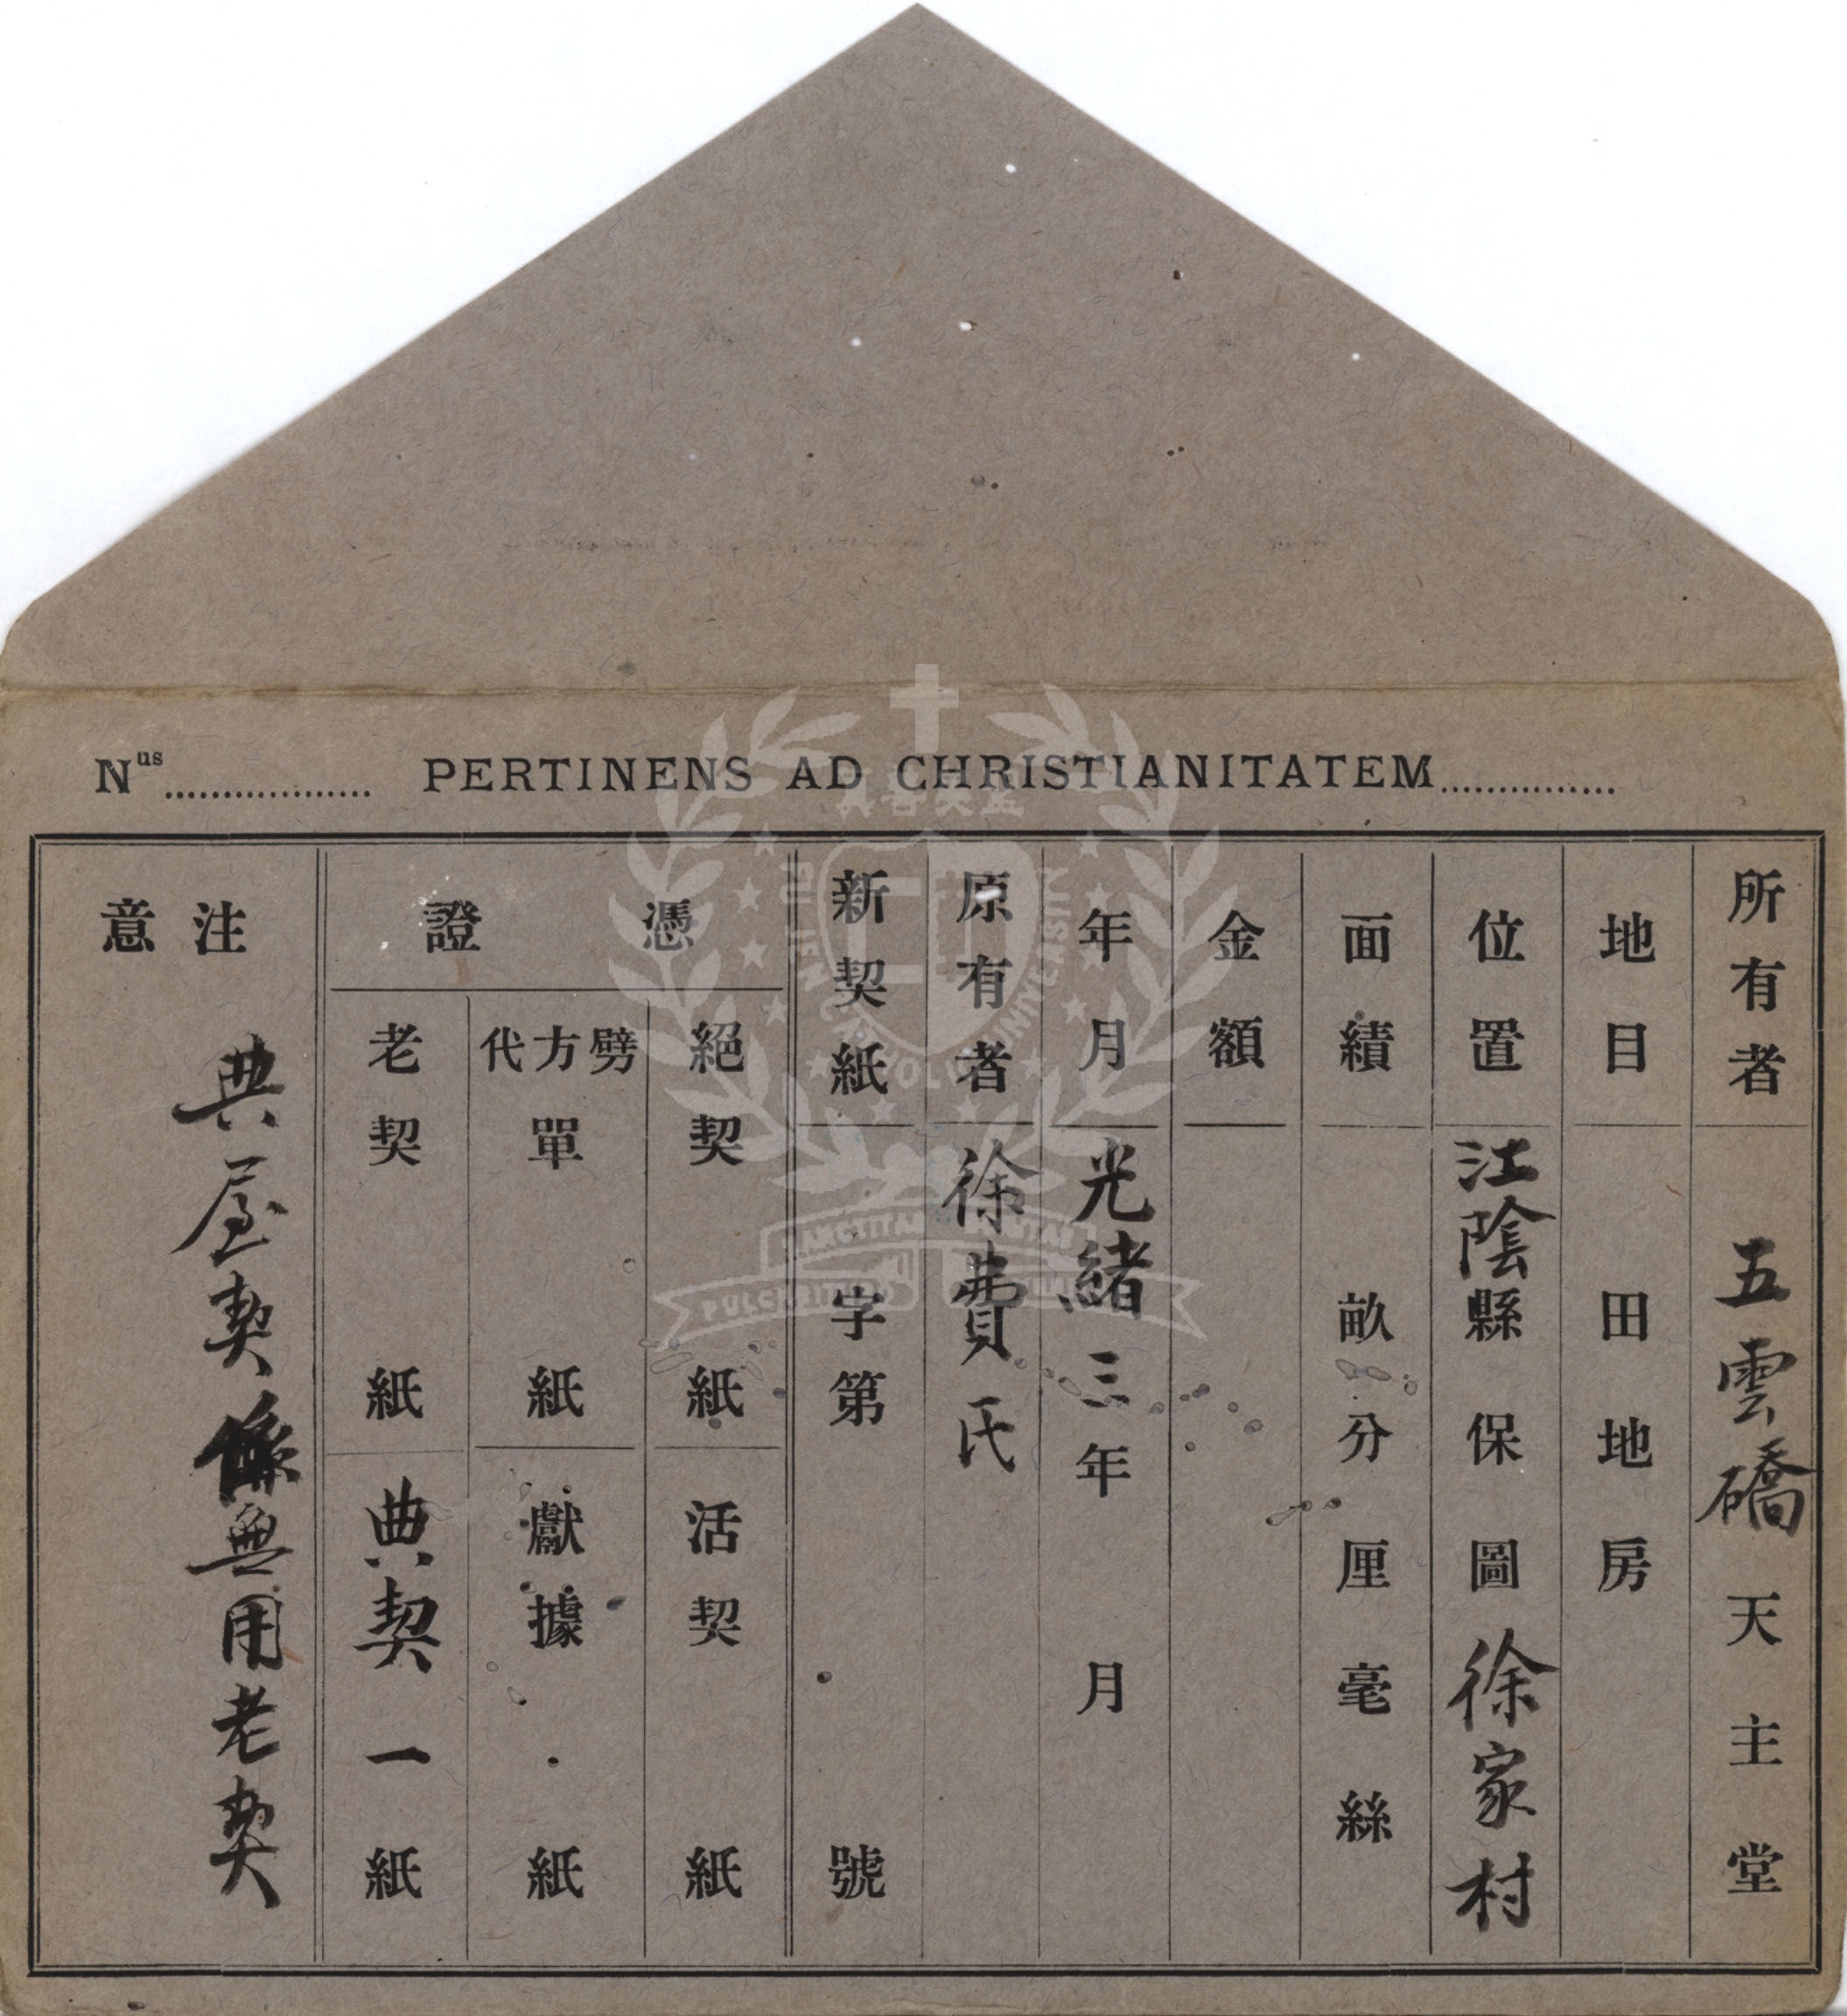 Nus.................. PERTINENS AD CHRISTIANITATEM...............
所有者 五雲礄天主堂
地目 田地房
位置 江陰縣保圖徐家村
面績 畝分厘毫絲
金額
年月 光緒三年月
原有者 徐費氏
新契紙 字第號
憑證
絕契 紙
活契 紙
劈方代單 紙
獻據 紙
老契 紙
典契一紙
注意 典屋契係無用老契